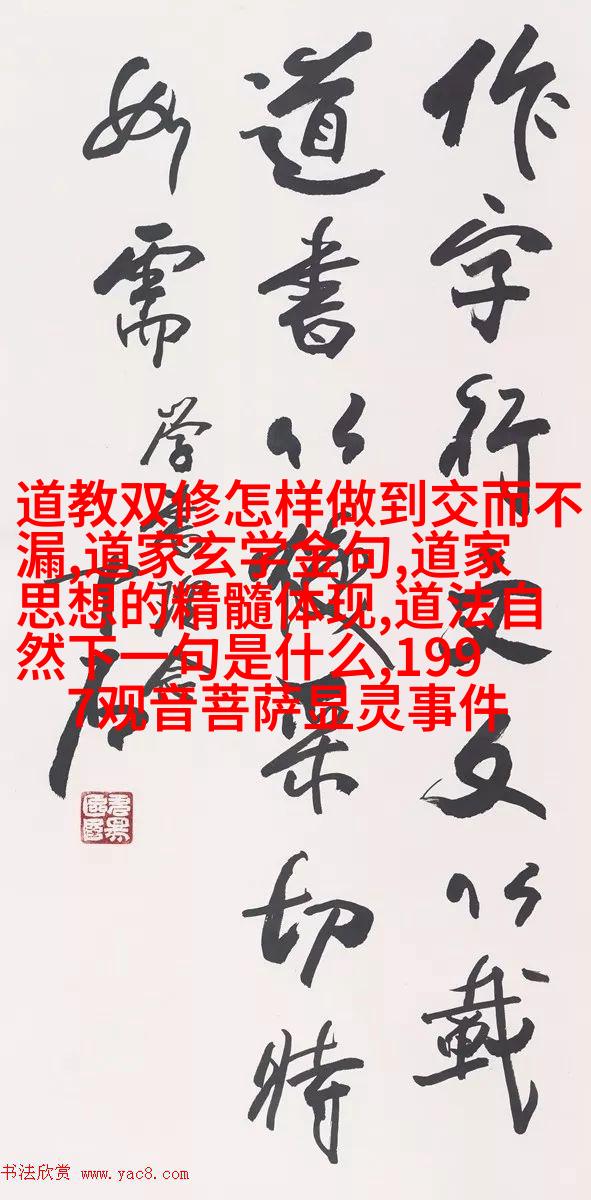 作字行文文以載
道書以煥采切時
如需
道教双修怎样做到交而不
漏,道家玄学金句,道家
思想的精髓体现,道法自
然下一句是什么,199
7观音菩萨显灵事件
书法欣赏 www.yac8.com